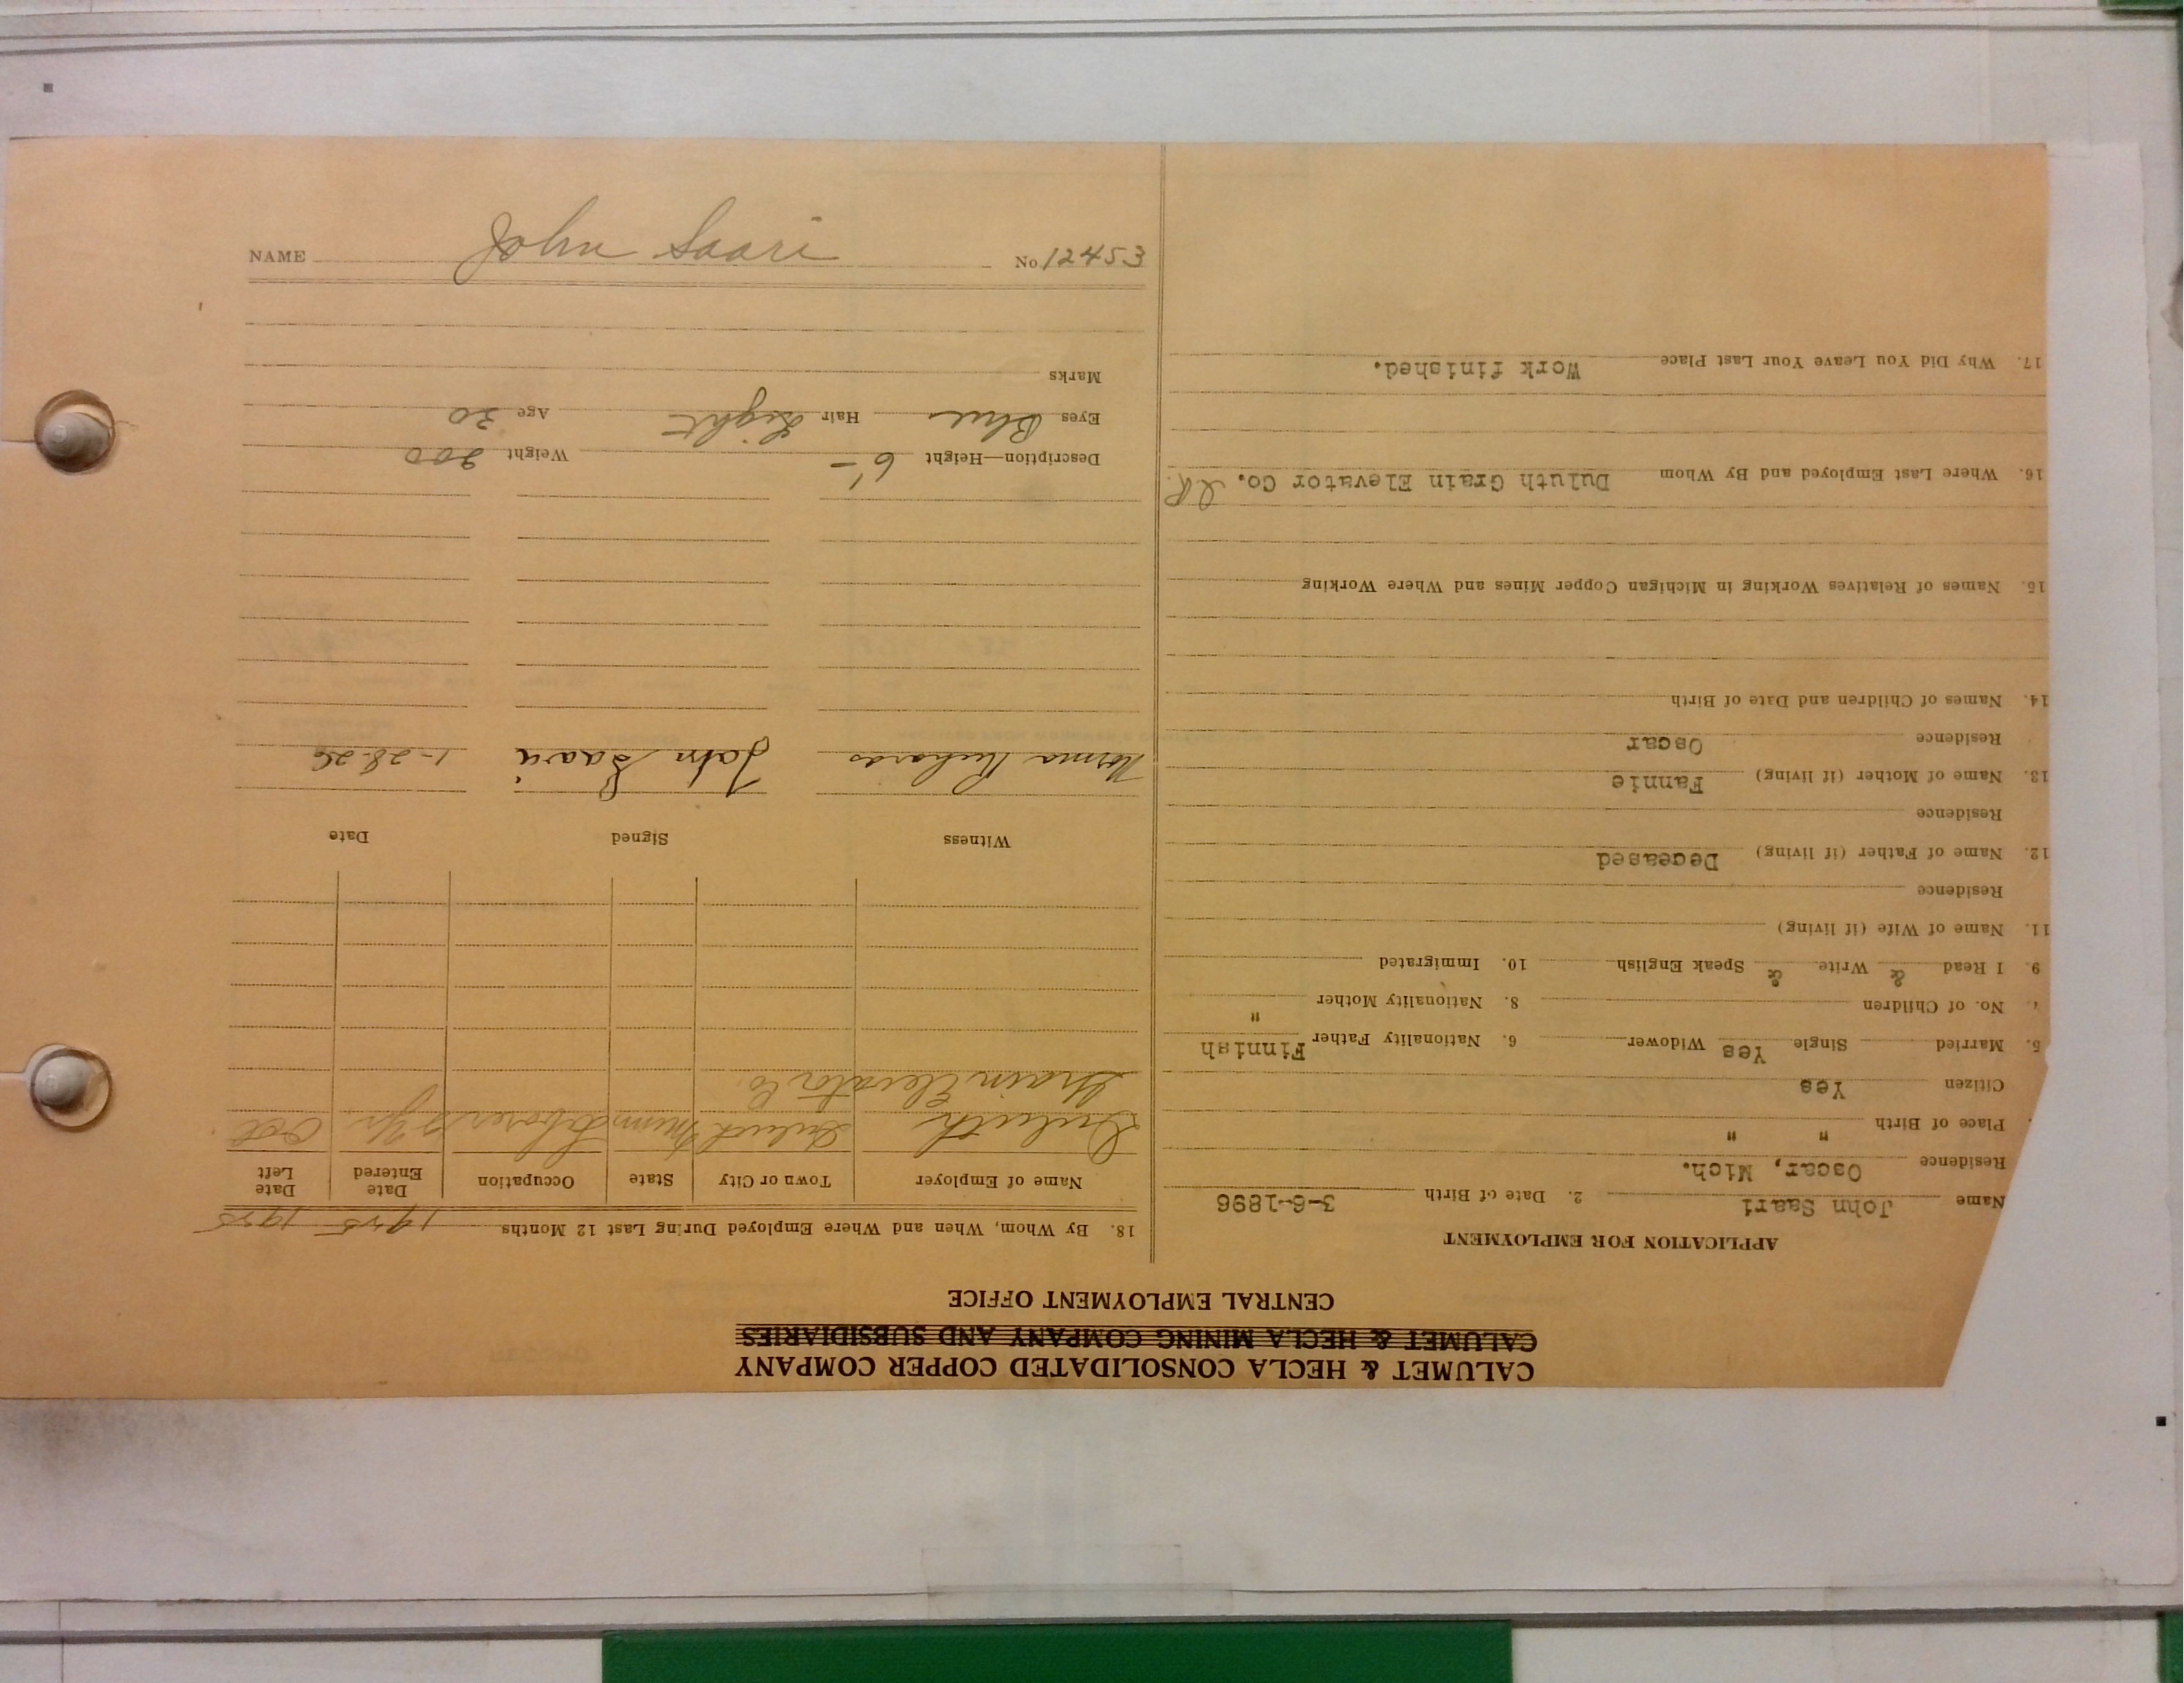 CALUMET & HECLA CONSOLIDATED COPPER COMPANY
CALUMET & HECLA MINING COMPANY AND SUBSIDIARIES
CENTRAL EMPLOYMENT OFFICE
APPLICATION FOR EMPLOYMENT
Name John Saari 2. Date of Birth 3-6-1896
Residence Oscar, Mich.
Place of Birth " "
Citizen Yes
5. Married Single Yes Widower 6. Nationality Father Finnish
No. of Children 8. Nationality Mother "
9. I Read & Write & Speak English 10. Immigrated
11. Name of Wife (if living)
Residence
12. Name of Father (if living) Deceased
Residence
13. Name of Mother (if living) Fannie
Residence Oscar
14. Names of Children and Date of Birth
15. Names of Relatives Working in Michigan Copper Mines and Where Working
16. Where Last Employed and By Whom Duluth Grain Elevator Co.
17. Why Did You Leave Your Last Place Work finished.
18. By Whom, When and Where Employed During Last 12 Months 1925 1925
Name of Employer Town or City State Occupation Date Entered Date Left
Duluth Duluth Minn Laborer Oct
Grain Elevator Co.
Witness Signed Date
Norma Richards John Saari 1-28-26
Description—Height 6'- Weight 200
Eyes Blue Hair Light Age 30
Marks
NAME John Saari No. 12453